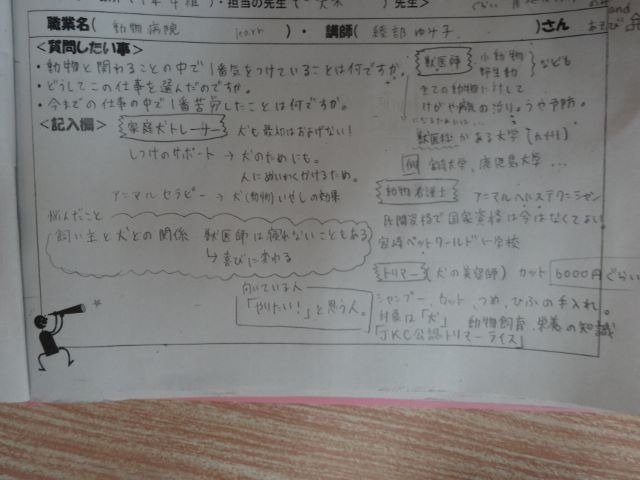 ・担当の先生
先生>
職業名( 動物病院 )・ 講師( 綾部 ゆみ子 )さん
<質問したい事>
・動物と関わることの中で1番気をつけていることは何ですか。
・どうしてこの仕事を選んだのですか。
・今までの仕事の中で1番苦労したことは何ですか。
<記入欄>
家庭犬トレーサー 犬も最初はおよげない!
しつけのサポート → 犬のためにも。
人にめいわくかけるため。
アニマルセラピー → 犬(動物)いやしの効果
悩んだこと
飼い主と犬との関係 獣医師は寝れないこともある
↳ 喜びに変わる
向いている人
「やりたい!」と思う人。
獣医師 小動物 野生動 なども
全ての動物に対して
けがや病気の治りょうや予防。
になるためには…
獣医科がある大学(九州)
例 宮崎大学、鹿児島大学 …
動物看護士 アニマルヘルステクニシャン
民間資格で国家資格は今はなくてよい
宮崎ペットワールド 学校
トリマー (犬の美容師) カット 6000円ぐらい
シャンプー、カット、つめ、ひふの手入れ。
対象は「犬」 動物飼育、栄養の知識
「JKC公認トリマーライス」